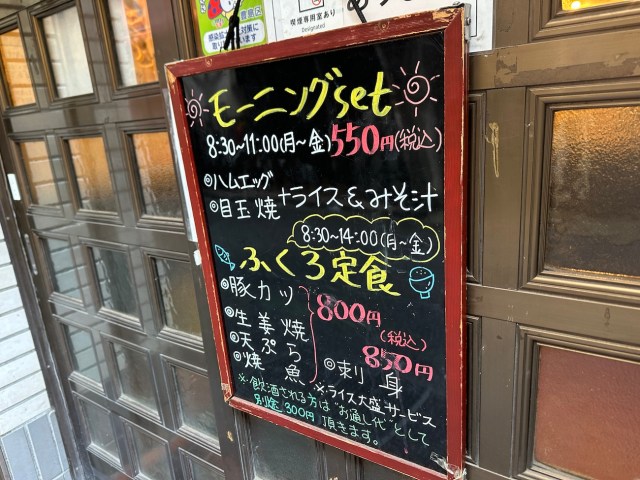 感染拡大止対策に
取り組んでいます
喫煙専用室あり
Designated
モーニングset
8:30~11:00(月~金)550円(税込)
◎ハムエッグ
◎目玉焼+ライス&みそ汁
8:30~14:00(月~金)
ふくろ定食
◎豚カツ
◎生姜焼
◎天ぷら
◎焼魚
800円
(税込)
850円
◎刺身
※ライス大盛サービス
※飲酒される方は"お通し代"として
別途300円頂きます。